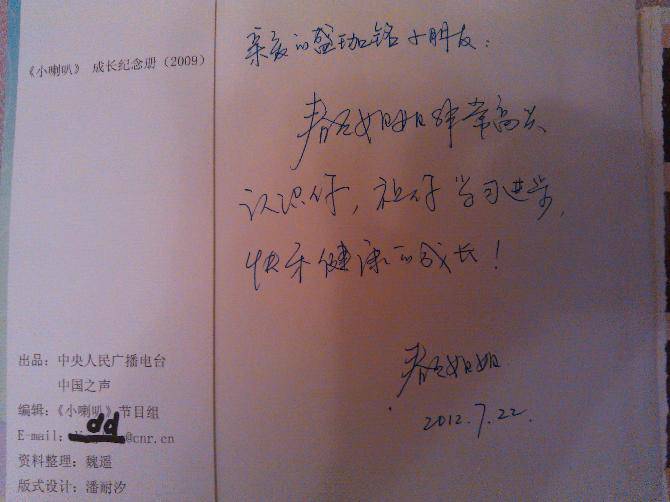 《小喇叭》 成长纪念册（2009）
出品：中央人民广播电台
中国之声
编辑：《小喇叭》节目组
E-mail：dd@cnr.cn
资料整理：魏遥
版式设计：潘耐汐
亲爱的盛珈铭小朋友：
春天姐姐非常高兴
认识你，祝你学习进步，
快乐健康的成长！
春天姐姐
2012.7.22.